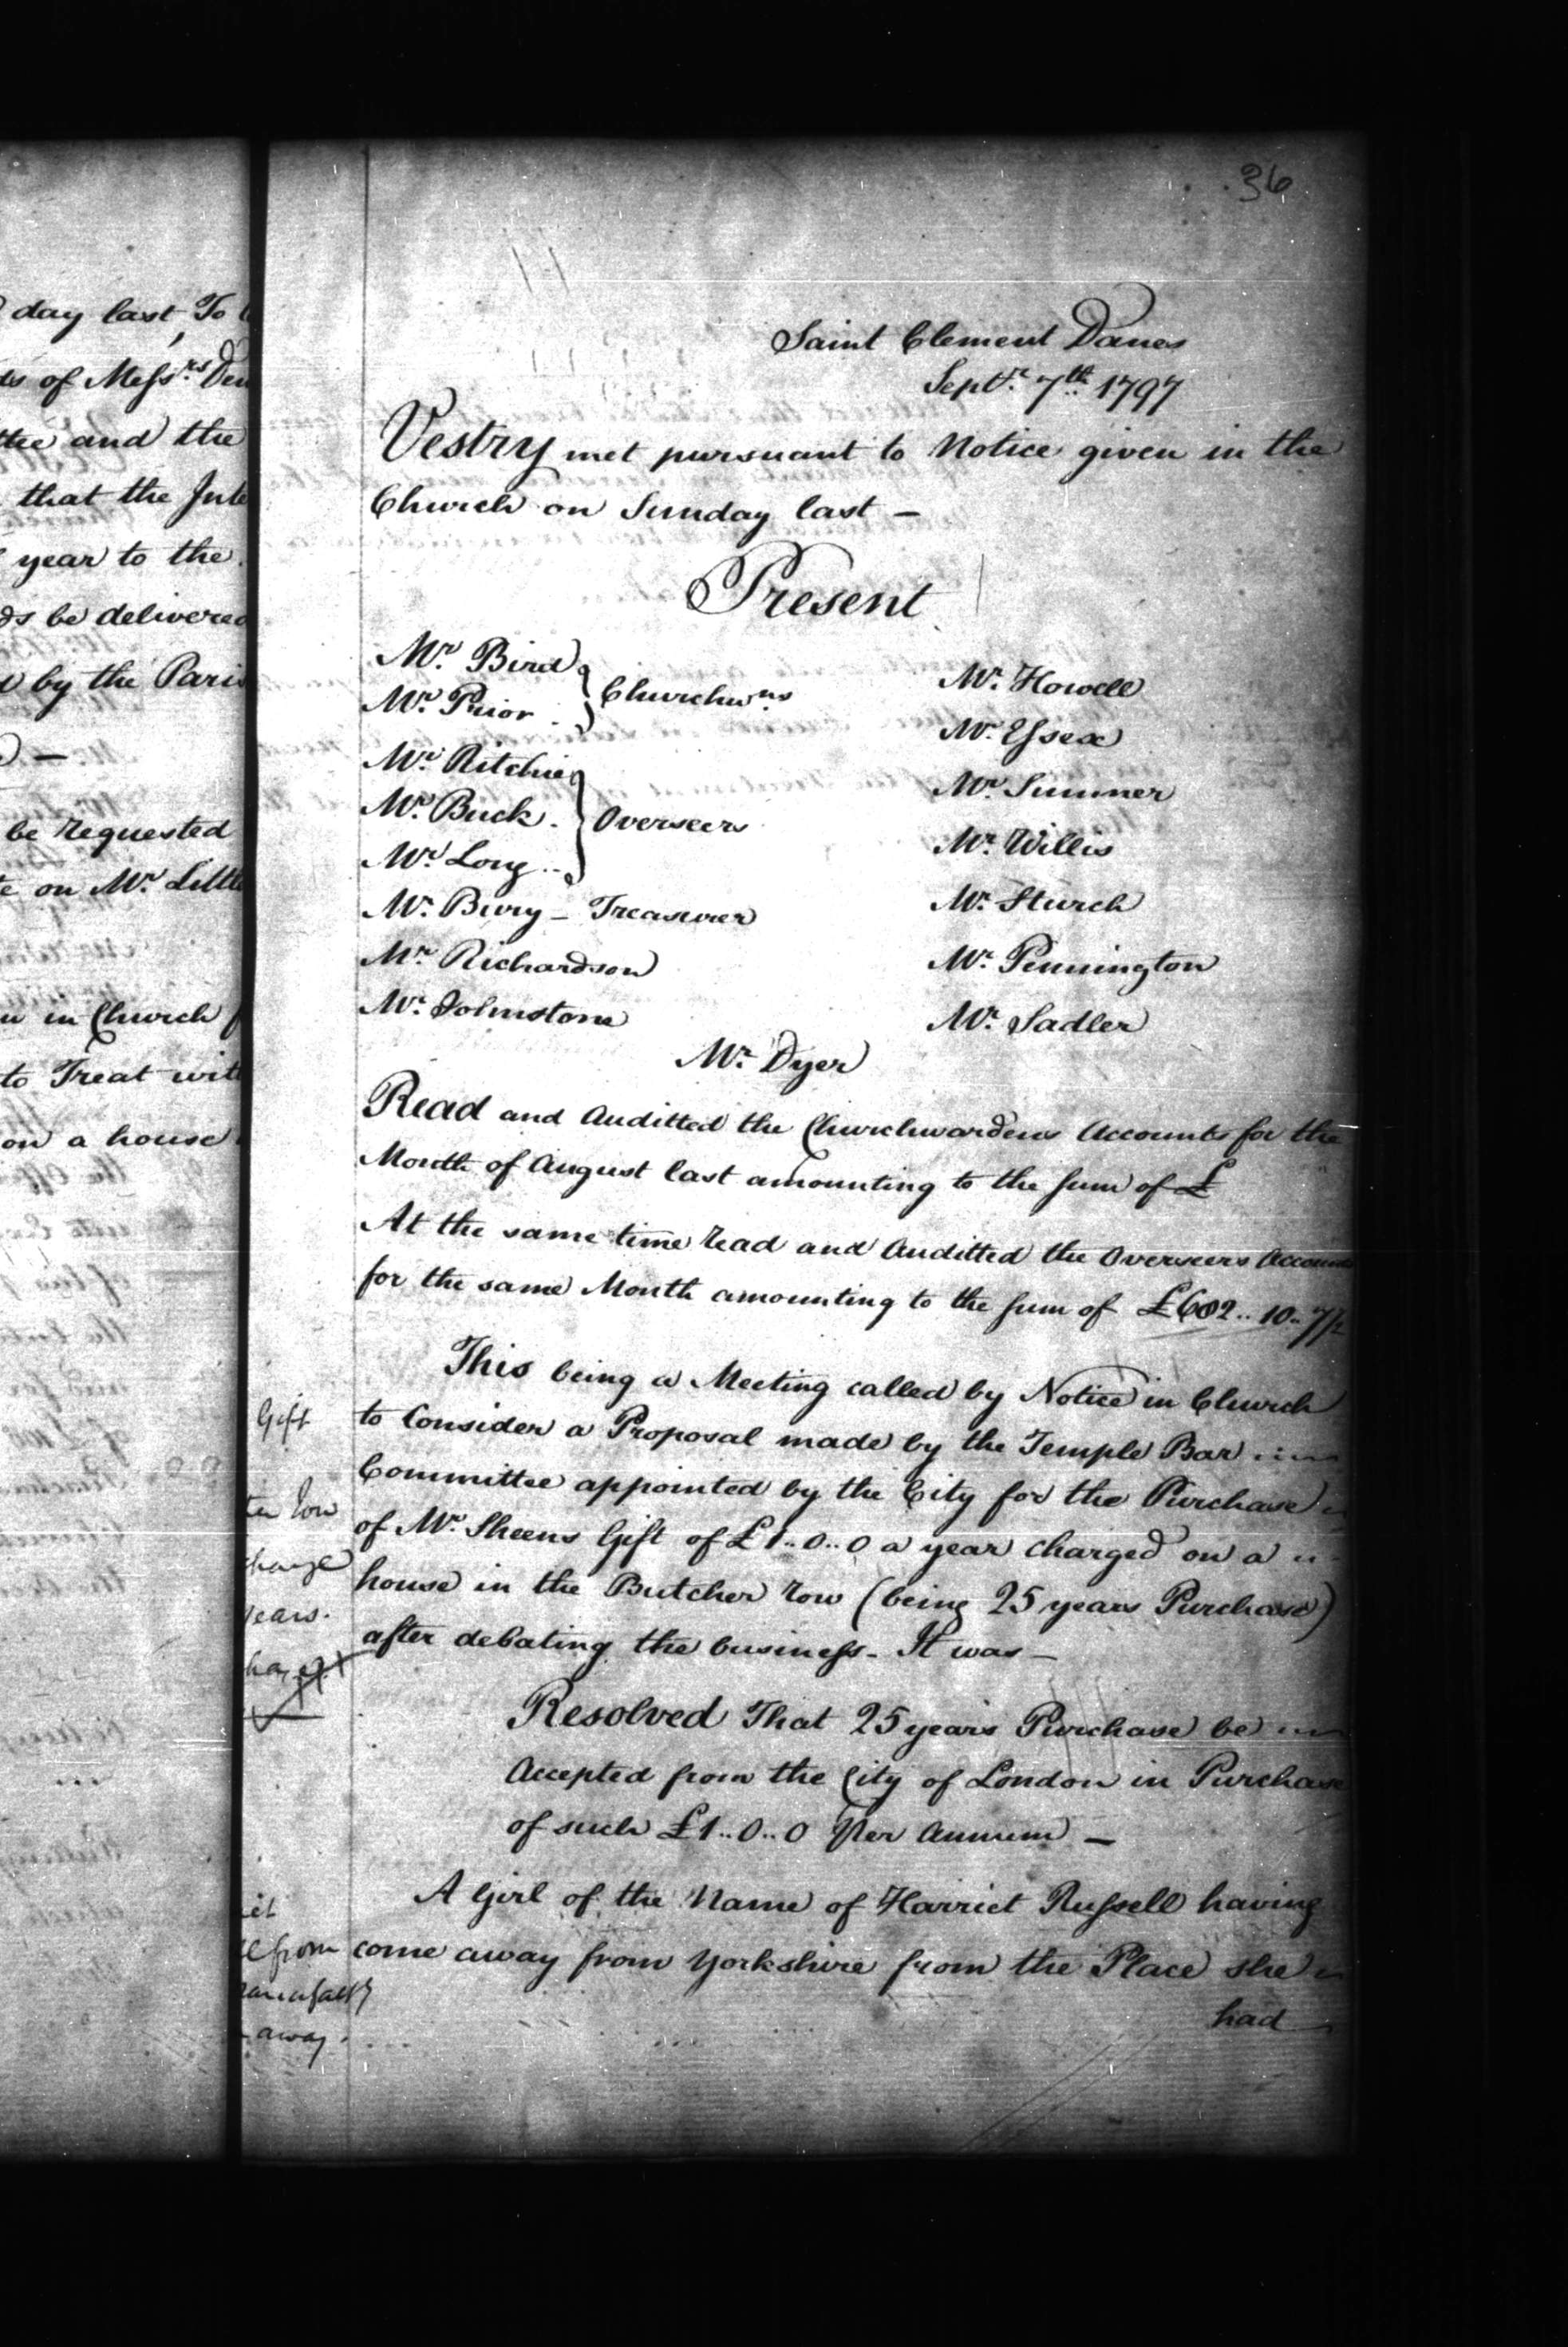 day last To
of Mess.rs Den
and the
that the Inte
year to the
be delivered
by the Paris
be requested
on Mr. Little
in Church
to Treat with
on a house
36
Saint Clement Danes
Septr. 7th. 1797
Vestry met pursuant to Notice given in the
Church on Sunday last -
Present
Mr. Bird
Mr. Prior } Churchwns.
Mr. Ritchie
Mr. Buck } Overseers
Mr. Long
Mr. Bury - Treasurer
Mr. Richardson
Mr. Johnstone
Mr. Howell
Mr. Essex
Mr. Sumner
Mr. Willis
Mr. Sturch
Mr. Pennington
Mr. Sadler
Mr. Dyer
Read and Auditted the Churchwardens Accounts for the
Month of August last amounting to the sum of £
At the same time read and Auditted the Overseers Accounts
for the same Month amounting to the sum of £682..10..7½
This being a Meeting called by Notice in Church
Gift
to Consider a Proposal made by the Temple Bar
Committee appointed by the City for the Purchase
of Mr. Sheens Gift of £1..0..0 a year charged on a
house in the Butcher Row (being 25 years Purchase)
years.
after debating the business - It was -
Resolved That 25 years Purchase be
Accepted from the City of London in Purchase
of such £1..0..0 Per Annum -
A Girl of the Name of Harriet Russell having
from
come away from Yorkshire from the Place she
away.
had